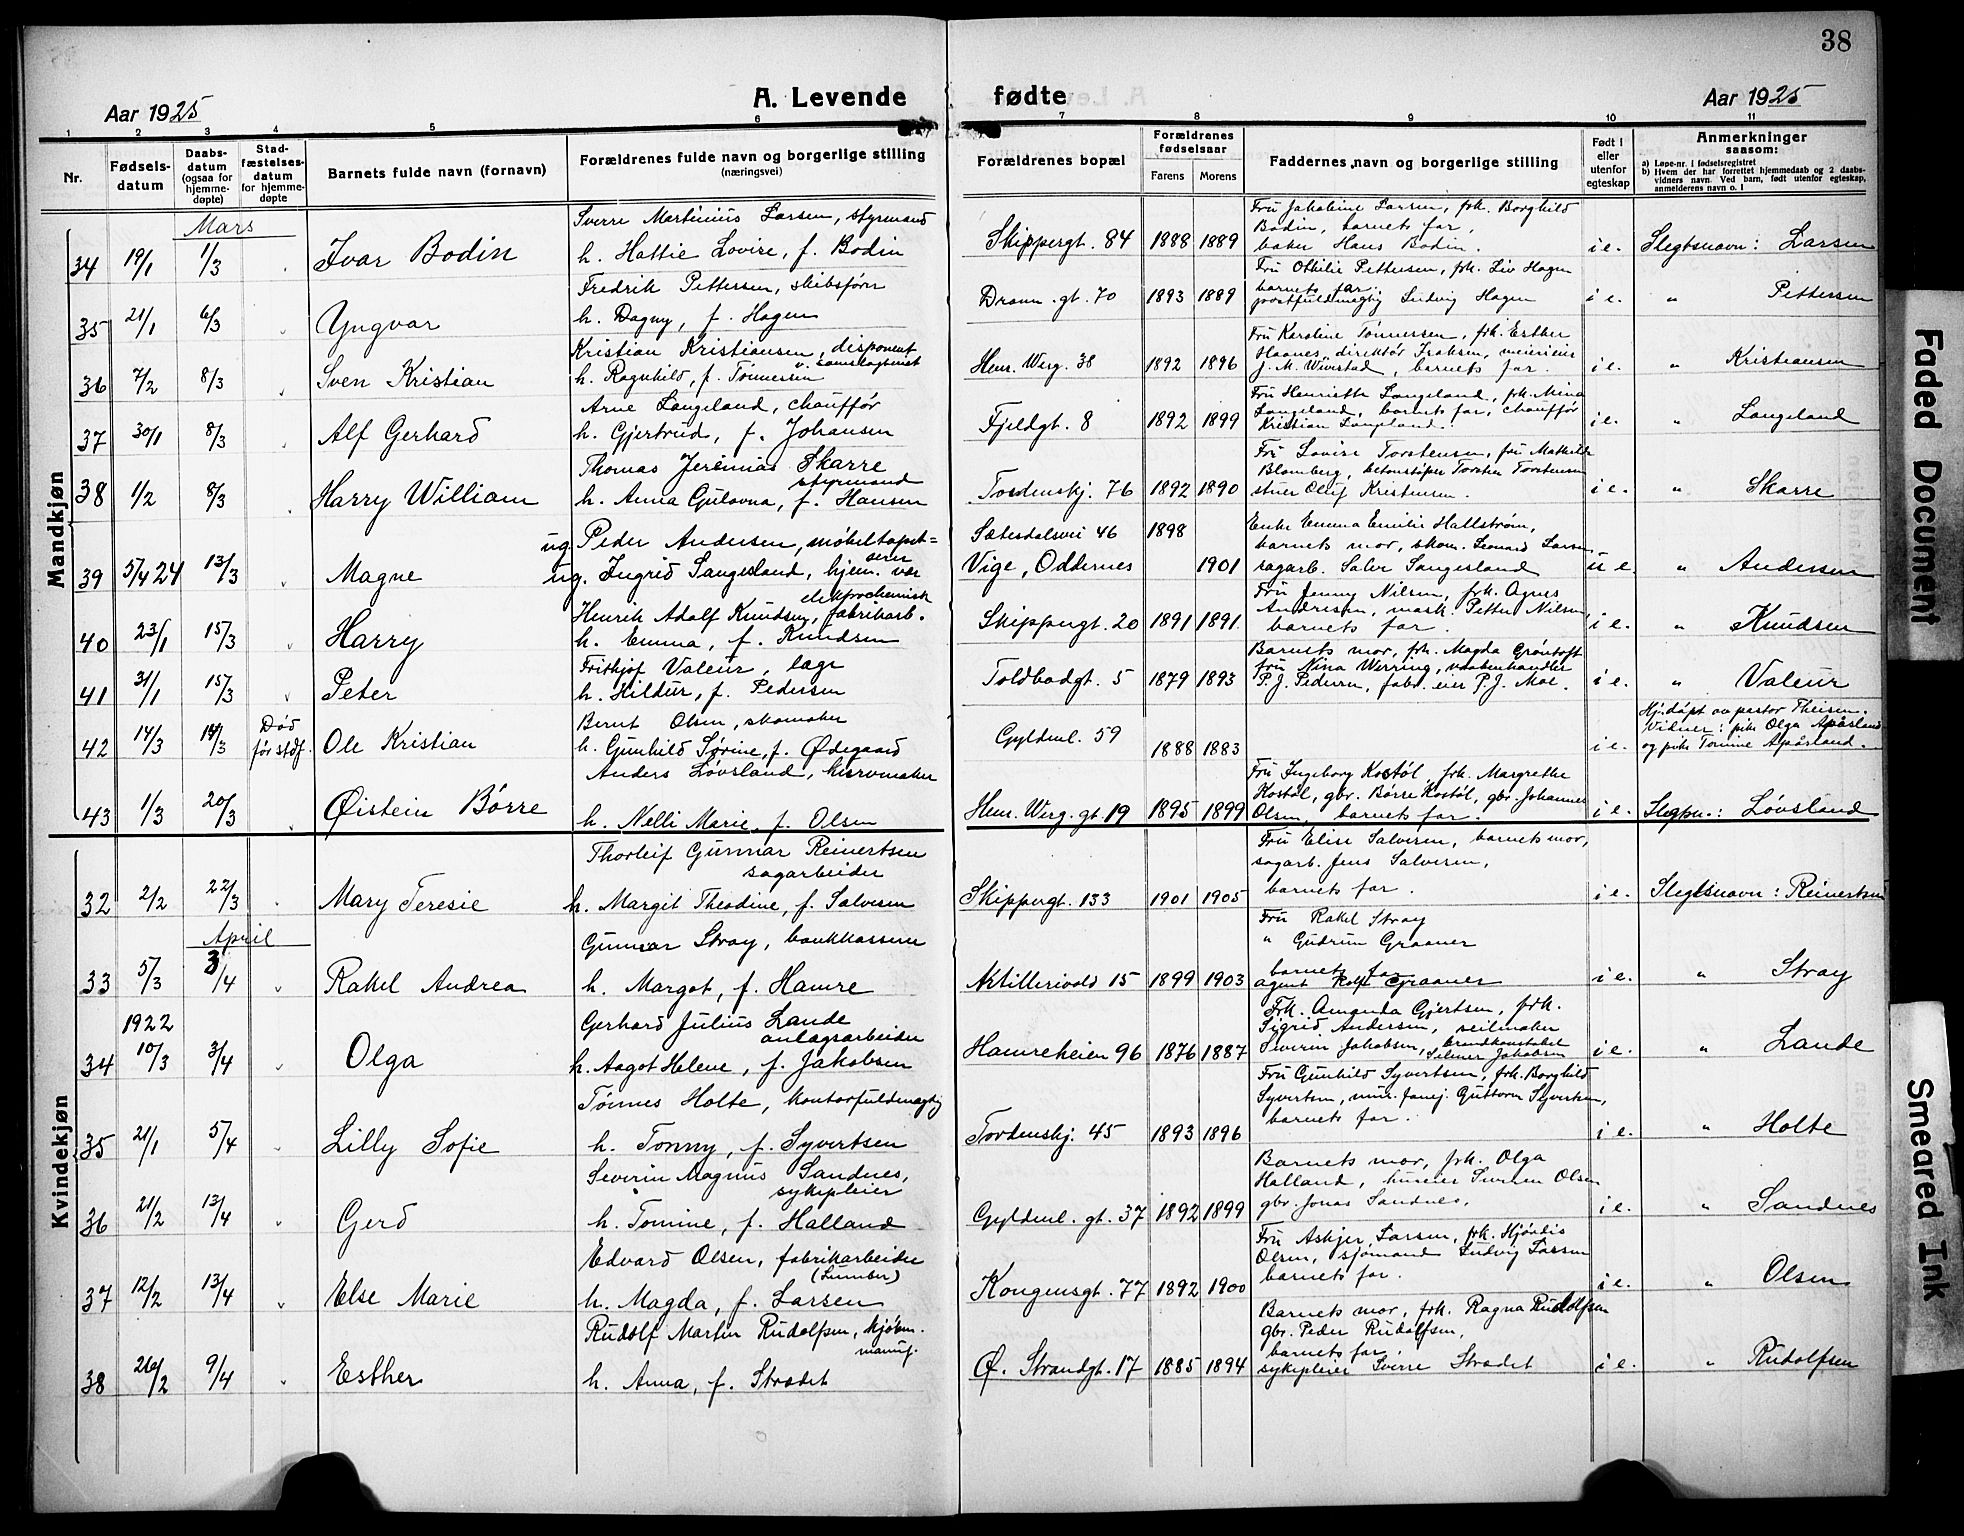 38
Aar 1925
A. Levende
fødte
Aar 1925
1 2 3 4 5 6 7 8 9 10 11
Nr.
Fødsels-
datum
Daabs-
datum
(ogsaa for
hjemme-
døpte)
Stad-
fæstelses-
datum
for hjemme-
døpte
Barnets fulde navn (fornavn)
Forældrenes fulde navn og borgerlige stilling
(næringsvei)
Forældrenes bopæl
Forældrenes
fødselsaar
Farens Morens
Faddernes navn og borgerlige stilling
Født i
eller
utenfor
egteskap
Anmerkninger
saasom:
a) Løpe-nr. i fødselsregistret
b) Hvem der har forrettet hjemmedaab og 2 daabs-
vidners navn. Ved barn, født utenfor egteskap,
anmelderens navn o. l
Mandkjøn
Mars
34 19/1 1/3 Ivar Bodin
Sverre Martinius Larsen, styrmand
h. Hattie Lovise, f. Bodin
Skippergt. 84 1888 1889
Fru Jakobine Larsen, frk. Borghild
Bodin, barnets far,
baker Hans Bodin.
i e. Slegtsnavn: Larsen
35 21/1 6/3 Yngvar
Fredrik Pettersen, skibsfører
h. Dagny, f. Hagen
Dronn. gt. 70 1893 1889
Fru Othilie Pettersen, frk. Liv Hagen
barnets far,
postfuldmægtig Ludvig Hagen
i e. " Pettersen
36 7/2 8/3 Sven Kristian
Kristian Kristiansen, disponent
h. Ragnhild, f. Tønnersen
Henr. Werg. 38 1892 1896
Fru Karoline Tønnersen, frk. Esther
Haanes, direktør Isaksen, meierieier
J. M. Wivestad, barnets far.
i e. " Kristiansen
37 30/1 8/3 Alf Gerhard
Arne Langeland, chauffør
h. Gjertrud, f. Johansen
Fjeldgt. 8 1892 1899
Fru Henriette Langeland, frk. Mina
Langeland, barnets far, chauffør
Kristian Langeland.
i e. " Langeland
38 1/2 8/3 Harry William
Thomas Jeremias Skarre
styrmand
h. Anna Gulovna, f. Hansen
Tordenskj. 76 1892 1890
Fru Lovise Torstensen, fru Mathilde
Blomberg, betonstøper Torsten Torstensen
stuer Oluf Kristensen.
i e. " Skarre
39 5/4 24 13/3 Magne
ug. Peder Andersen, møbeltapet=
serer
ug. Ingrid Langesland, hjem. vær
Sætesdalsvei 46 1898
Vige, Oddernes 1901
Enke Emma Emilie Hallstrøm,
barnets mor, skom. Leonard Larsen
sagarb. Salve Langesland
u e. " Andersen
40 23/1 15/3 Harry
elektrochemisk
Henrik Adolf Knudsen, fabrikarb.
h. Emma, f. Knudsen
Skippergt. 20 1891 1891
Fru Jenny Nilsen, frk. Agnes
Andresen, mask. Petter Nilsen,
barnets far.
i e. " Knudsen
41 31/1 15/3 Peter
Frithjof Valeur, læge
h. Hildur, f. Pedersen
Toldbodgt. 5 1879 1893
Barnets mor, frk. Magda Grøntoft
fru Nina Werring, vaabenhandler
P. J. Pedersen, fabr. eier P. J. Moe.
i e. " Valeur
42 14/3 14/3 Død
før stdf. Ole Kristian
Bernt Olsen, skomaker
h. Gunhild Sørine, f. Ødegaard
Gyldenl. 59 1888 1883
i e.
Hj.døpt av pastor Theisen.
Vidner: pik. Olga Apåsland
og pike Tomine Apåsland.
43 1/3 20/3 Øistein Børre
Anders Løvsland, kurvmaker
h. Nelli Marie, f. Olsen
Henr. Werg. gt. 19 1895 1899
Fru Ingeborg Kostøl, frk. Margrethe
Kostøl, gbr. Børre Kostøl, gbr. Johannes
Olsen, barnets far.
i e. Slegtsn.: Løvsland
Kvindekjøn
32 2/2 22/3 Mary Teresie
Thorleif Gunnar Reinertsen
sagarbeider
h. Margit Theodine, f. Salvesen
Skippergt. 133 1901 1905
Fru Elise Salvesen, barnets mor,
sagarb. Jens Salvesen,
barnets far.
i e. Slegtsnavn: Reinertsen
April
33 5/3 3/4 Rakel Andrea
Gunnar Stray, bankkasserer
h. Margot, f. Hamre
Artillerivold 15 1899 1903
Fru Rakel Stray
" Gudrun Graaner
barnets far
agent Rolf Graaner
i e. " Stray
1922
34 10/3 3/4 Olga
Gerhard Julius Lande
anlægsarbeider
h. Aagot Helene, f. Jakobsen
Hamreheien 96 1876 1887
Frk. Amanda Gjertsen, frk.
Sigrid Andersen, seilmaker
Severin Jakobsen, brandkonstabel
Selmer Jakobsen
i e. " Lande
35 21/1 5/4 Lilly Sofie
Tønnes Holte, kontorfuldmægtig
h. Tonny, f. Syvertsen
Tordenskj. 45 1893 1896
Fru Gunhild Syvertsen, frk. Borghild
Syvertsen, mur. Guttorm Syvertsen,
barnets far.
i e. " Holte
36 21/2 13/4 Gerd
Severin Magnus Sandnes,
sykepleier
h. Tomine, f. Halland
Gyldenl. gt. 37 1892 1899
Barnets mor, frk. Olga
Halland, huseier Severin Olsen
gbr. Jonas Sandnes.
i e. " Sandnes
37 12/2 13/4 Else Marie
Edvard Olsen, fabrikarbeider
(Lumber)
h. Magda, f. Larsen
Kongensgt. 77 1892 1900
Fru Askjer Larsen, frk. Hjørdis
Olsen, sjømand Ludvig Larsen
barnets far.
i e. " Olsen
38 26/2 9/4 Esther
Rudolf Martin Rudolfsen, kjøbm.
manuf.
h. Anna, f. Strødet
Ø. Strandgt. 17 1885 1894
Barnets mor, frk. Ragna Rudolfsen
gbr. Peder Rudolfsen,
barnets far,
sykepleier Sverre Strødet
i e. " Rudolfsen
Faded Document
Smeared Ink